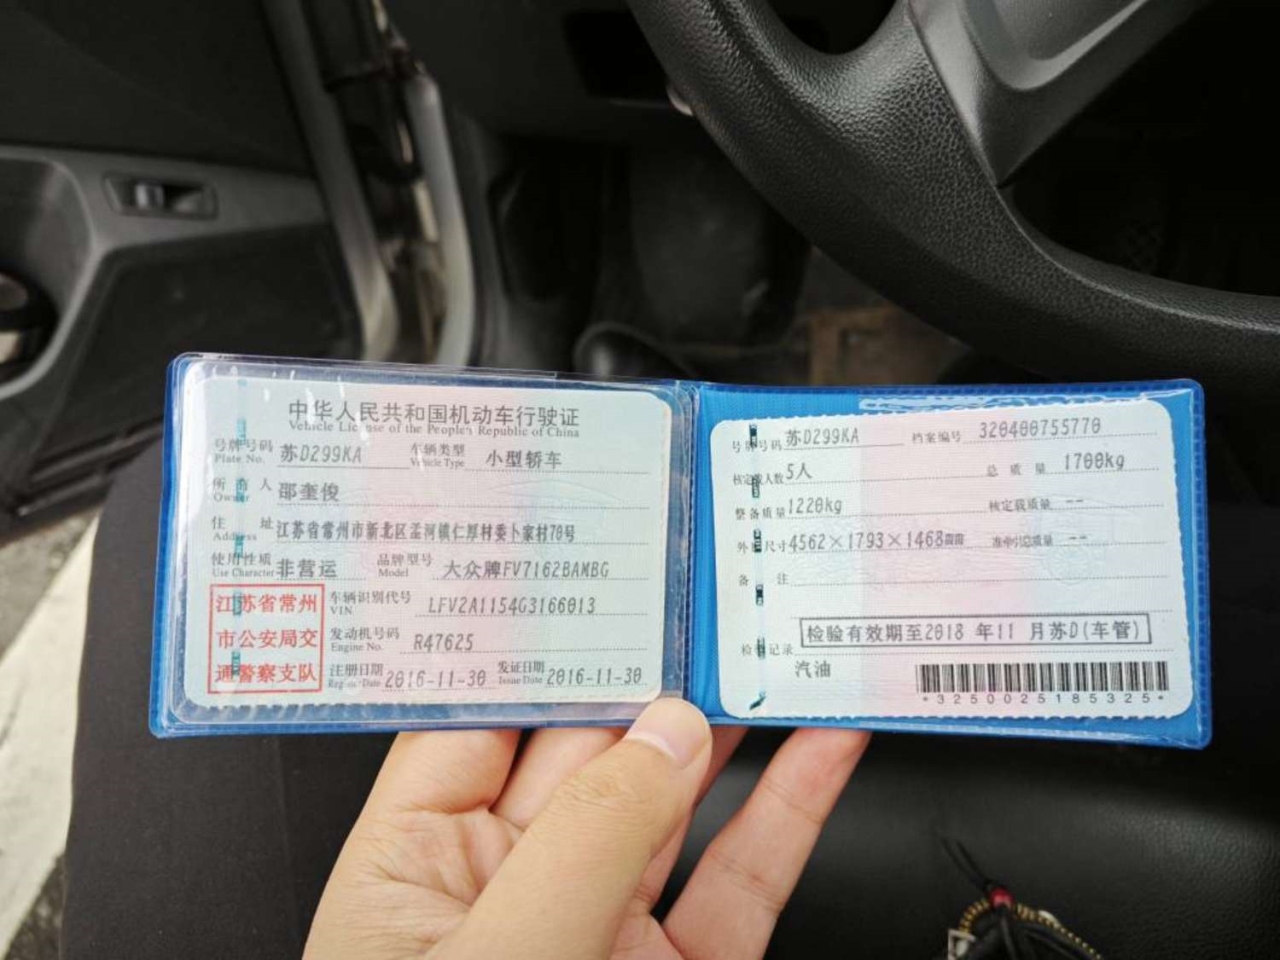 中华人民共和国机动车行驶证
Vehicle License of the People's Republic of China
号牌号码 苏D299KA 车辆类型 小型轿车
Plate No. Vehicle Type
所有人 邵奎俊
Owner
住址 江苏省常州市新北区孟河镇仁厚村委卜家村70号
Address
使用性质 非营运 品牌型号 大众牌FV7162BAMBG
Use Character Model
江苏省常州
市公安局交
通警察支队
车辆识别代号 LFV2A1154G3166013
VIN
发动机号码 R47625
Engine No.
注册日期 2016-11-30 发证日期 2016-11-30
Register Date Issue Date
号牌号码 苏D299KA 档案编号 320400755770
核定载人数 5人 总质量 1700kg
整备质量 1220kg 核定载质量 --
外廓尺寸 4562×1793×1468mm 准牵引总质量 --
备注
检验记录 检验有效期至2018 年11 月苏D(车管)
汽油
*3250025185325*